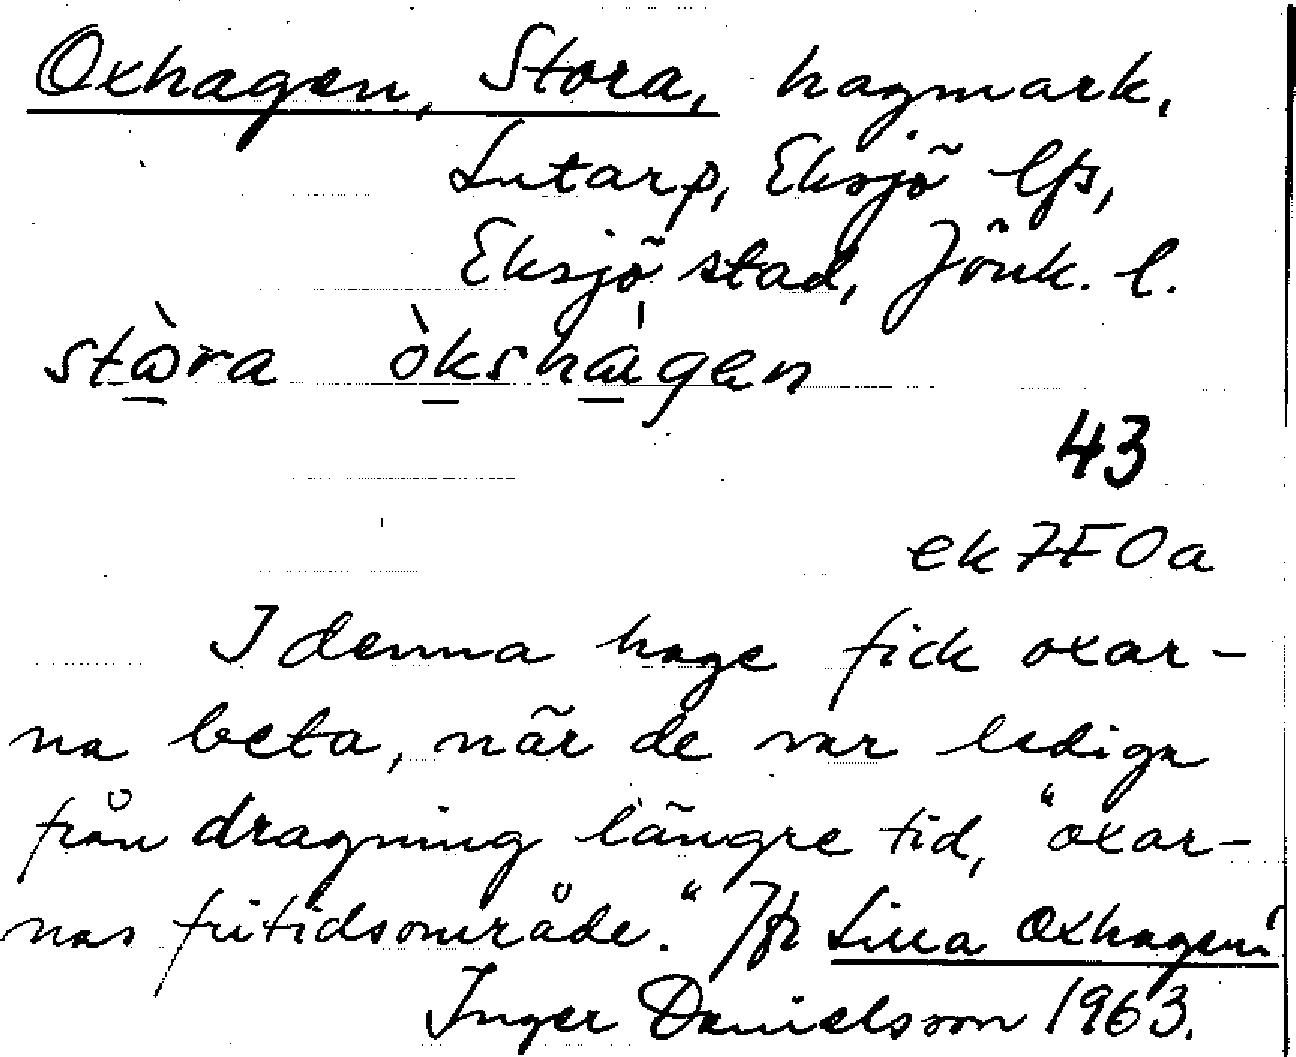 Oxhagen, Stora, hagmark,
Lutarp, Eksjö lfs,
Eksjö stad, Jönk. l.
stὼra òkshὰgen
43
ek 7F0a
I denna hage fick oxar-
na beta, när de var lediga
från dragning längre tid, "oxar-
nas fritidsområde." Jfr Lilla Oxhagen!
Inger Danielsson 1963.